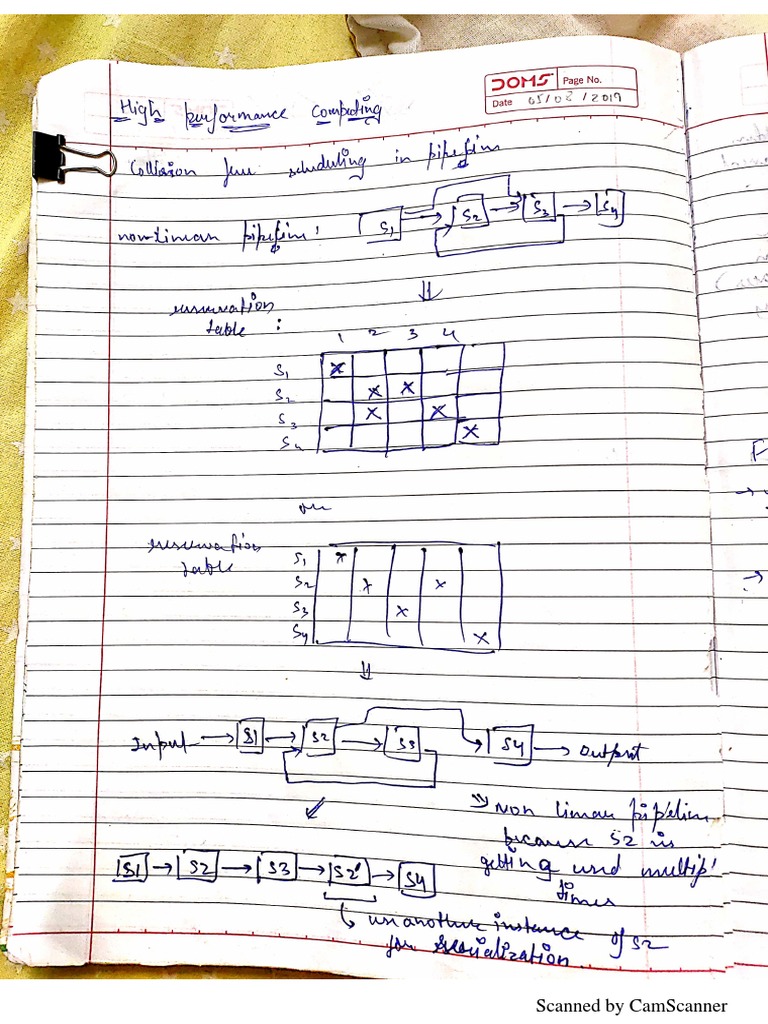 DOMS Page No.
Date 05/02/2019
High Performance Computing
Collision free scheduling in pipeline
non-linear pipeline:
S1 S2 S3 S4
reservation
table :
1 2 3 4
S1 x
S2 x x
S3 x x
S4 x
or
reservation
table
S1 x
S2 x x
S3 x
S4 x
Input S1 S2 S3 S4 Output
Non linear pipeline
because S2 is
getting used multip'
times
S1 S2 S3 S2' S4
use another instance of S2
for serialization
Scanned by CamScanner